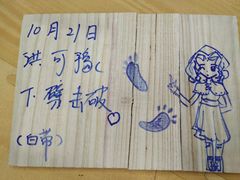 10月21日
洪可
下劈击破
(白带)